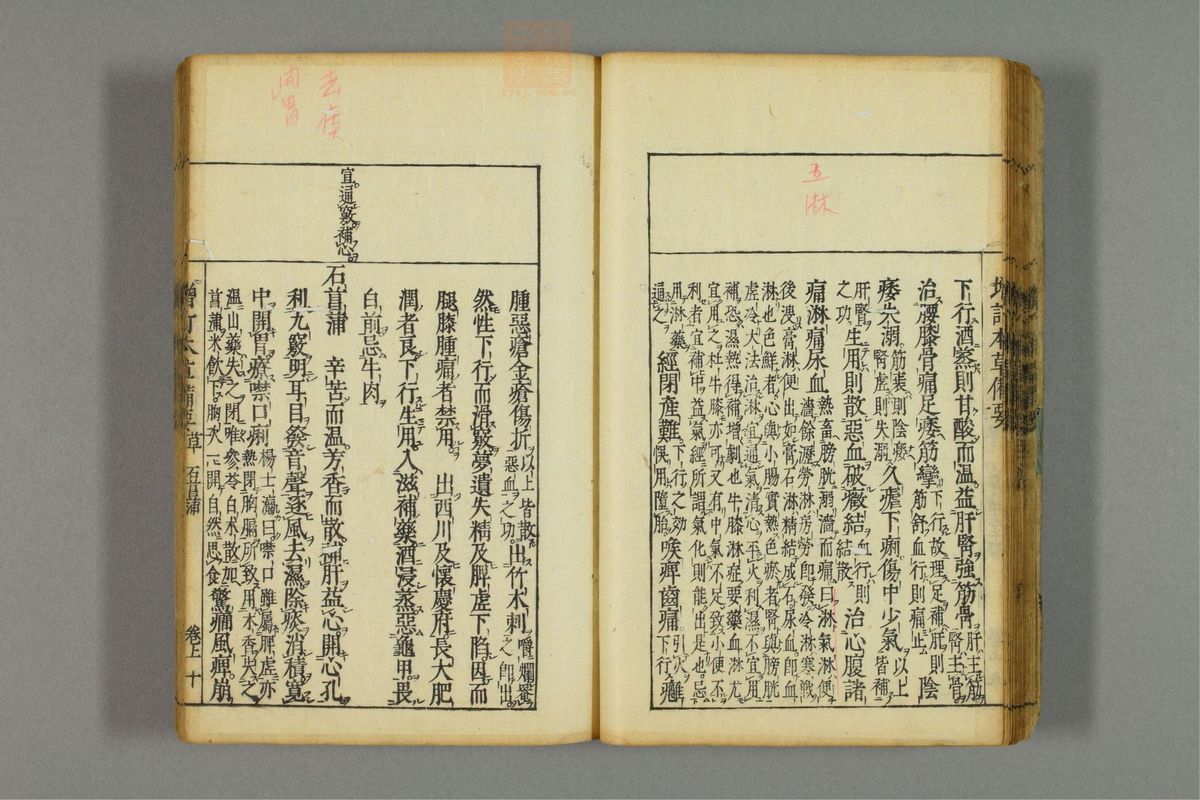 五淋
下行酒蒸則甘酸而溫益肝腎強筋骨肝主筋腎主骨
治腰膝骨痛足痿筋攣下行故理足補肝則筋舒血行則痛止陰
痿失溺筋衰則陰痿腎虛則失溺久瘧下痢傷中少氣以上皆補
肝腎之功生用則散惡血破癥結血行則結散治心腹諸
痛淋痛尿血熱畜膀胱溺濇而痛曰淋氣淋便濇餘瀝勞淋房勞即發冷淋寒戰
後溲膏淋便出如膏石淋精結成石尿血即血淋也色鮮者心與小腸實熱色瘀者腎與膀胱
虛冷大法治淋宜通氣清心平火利濕不宜用補恐濕熱得補增劇也牛膝淋症要藥血淋尤
宜用之杜牛膝亦可又有中氣不足致小便不利者宜補中益氣經所謂氣化則能出是也忌
用淋藥通之經閉產難下行之效誤用墮胎喉痺齒痛引火下行癰
增訂本草備要
宣通竅補心
腫惡瘡金瘡傷折以上皆散惡血之功出竹木刺嚼爛罨之即出
然性下行而滑竅夢遺失精及脾虛下陷因而
腿膝腫痛者禁用出西川及懷慶府長大肥
潤者良下行生用入滋補藥酒浸蒸惡龜甲畏
白前忌牛肉
石菖蒲辛苦而溫芳香而散補肝益心開心孔
利九竅明耳目發音聲逐風去濕除痰消積寬
中開胃療噤口痢楊士瀛曰噤口雖屬脾虛亦熱閉胸膈所致用木香失之
溫山藥失之閉唯參苓白朮散加菖蒲米飲下胸次一開自然思食驚癇風痺崩
增訂本草備要 草 石菖蒲 卷上 十